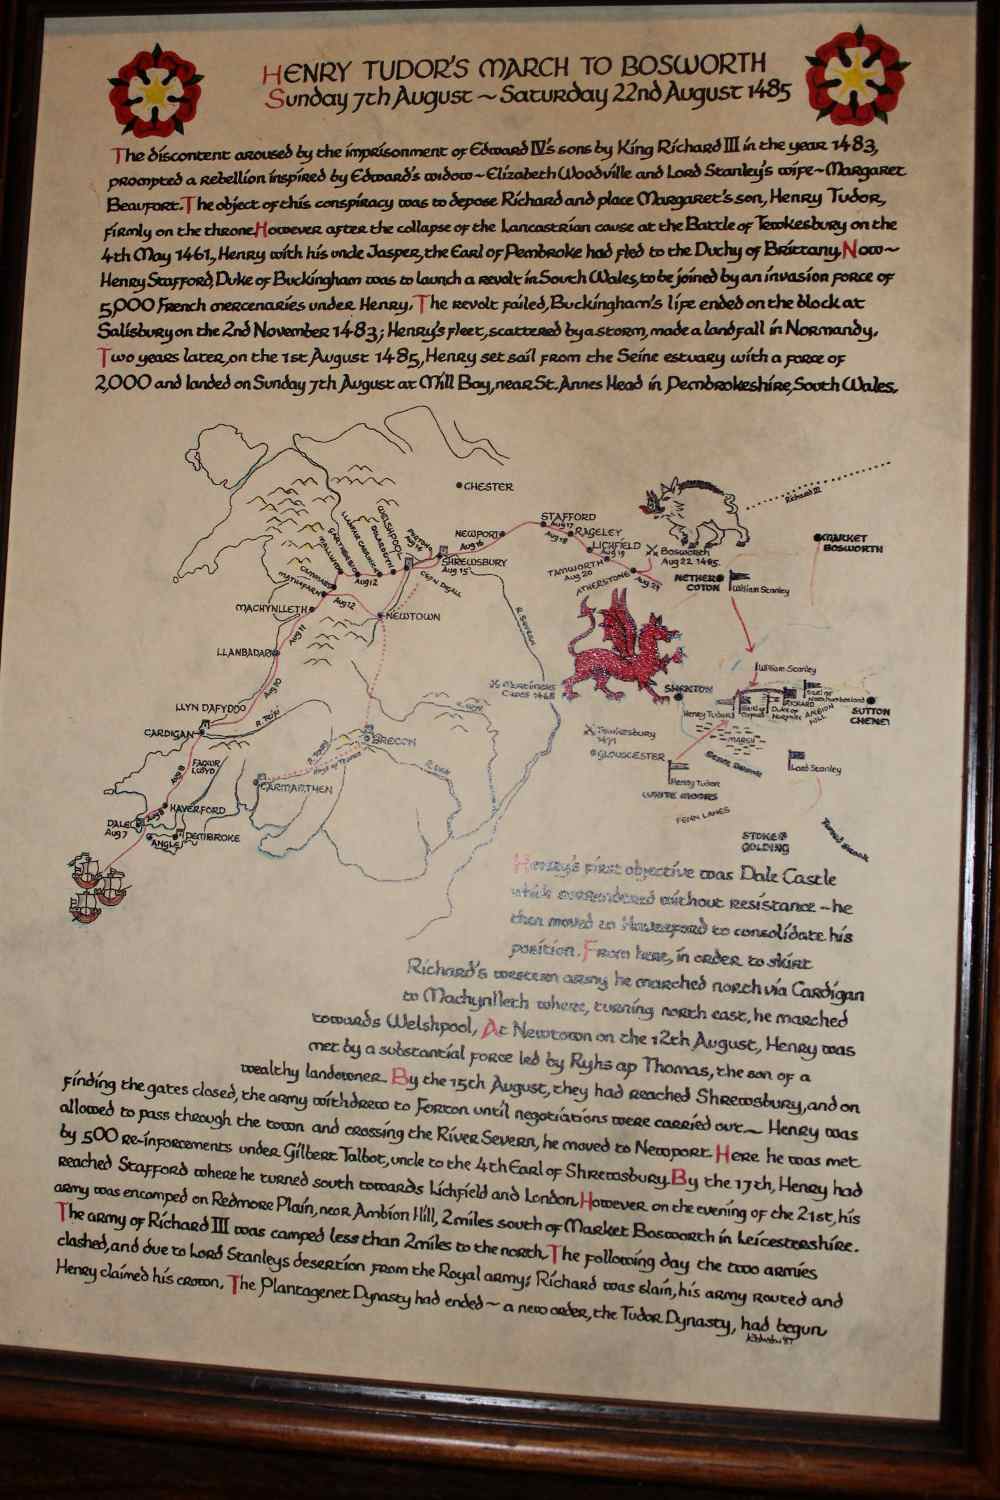 HENRY TUDOR'S MARCH TO BOSWORTH
Sunday 7th August ~ Saturday 22nd August 1485
The discontent aroused by the imprisonment of Edward IV's sons by King Richard III in the year 1483,
prompted a rebellion inspired by Edward's widow ~ Elizabeth Woodville and Lord Stanley's wife ~ Margaret
Beaufort. The object of this conspiracy was to depose Richard and place Margaret's son, Henry Tudor,
firmly on the throne. However after the collapse of the Lancastrian cause at the Battle of Tewkesbury on the
4th May 1461, Henry with his uncle Jasper, the Earl of Pembroke had fled to the Duchy of Brittany. Now ~
Henry Stafford, Duke of Buckingham was to launch a revolt in South Wales, to be joined by an invasion force of
5,000 French mercenaries under Henry. The revolt failed, Buckingham's life ended on the block at
Salisbury on the 2nd November 1483; Henry's fleet, scattered by a storm, made a landfall in Normandy.
Two years later, on the 1st August 1485, Henry set sail from the Seine estuary with a force of
2,000 and landed on Sunday 7th August at Mill Bay, near St. Annes Head in Pembrokeshire, South Wales.
CHESTER
Richard III
STAFFORD
Aug 17
NEWPORT
Aug 16
RAGELEY
Aug 18
LICHFIELD
Aug 19
TAMWORTH
Aug 20
ATHERSTONE
Aug 21
Bosworth
Aug 22 1485.
MARKET
BOSWORTH
NETHER
COTON
William Stanley
WELSHPOOL
SHREWSBURY
Aug 15
CEFN DIGOLL
Aug 12
MATHAFARN
Aug 12
MACHYNLLETH
NEWTOWN
R. Severn
Aug 11
LLANBADARN
Aug 10
LLYN DAFYDDO
CARDIGAN
R. Teifi
Mortimers
Cross 1461
SHENTON
William Stanley
Henry Tudor
RICHARD
Duke of
Norfolk
Earl of
Northumberland
AMBION
HILL
SUTTON
CHENEY
MARSH
Tewkesbury
1471
GLOUCESTER
Lord Stanley
Henry Tudor
WHITE MOORS
FERN LANES
STOKE
GOLDING
BRECON
CARMARTHEN
R. Usk
FAGWR
LLWYD
Aug 9
HAVERFORD
Aug 8
DALE
Aug 7
ANGLE
PEMBROKE
Henry's first objective was Dale Castle
which surrendered without resistance - he
then moved to Haverford to consolidate his
position. From here, in order to skirt
Richard's western army he marched north via Cardigan
to Machynlleth where, turning north east, he marched
towards Welshpool, At Newtown on the 12th August, Henry was
met by a substantial force led by Ryhs ap Thomas, the son of a
wealthy landowner. By the 15th August, they had reached Shrewsbury, and on
finding the gates closed, the army withdrew to Forton until negotiations were carried out ~ Henry was
allowed to pass through the town and crossing the River Severn, he moved to Newport. Here he was met
by 500 re-inforcements under Gilbert Talbot, uncle to the 4th Earl of Shrewsbury. By the 17th, Henry had
reached Stafford where he turned south towards Lichfield and London. However on the evening of the 21st, his
army was encamped on Redmore Plain, near Ambion Hill, 2 miles south of Market Bosworth in Leicestershire.
The army of Richard III was camped less than 2 miles to the north. The following day the two armies
clashed, and due to Lord Stanleys desertion from the Royal army; Richard was slain, his army routed and
Henry claimed his crown. The Plantagenet Dynasty had ended ~ a new order, the Tudor Dynasty, had begun